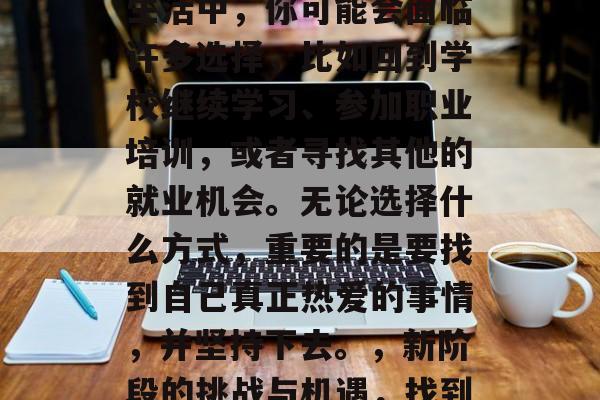 生活中，你可能会面临
许多选择，比如回到学
校继续学习、参加职业
培训，或者寻找其他的
就业机会。无论选择什
么方式，重要的是要找
到自己真正热爱的事情
，并坚持下去。，新阶
段的挑战与机遇，找到